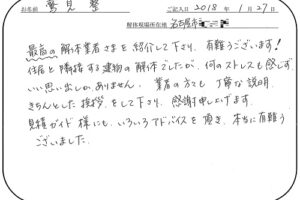 お名前 鷲見 整 ご記入日 2018年1月27日
解体現場所在地 名古屋市
最高の解体業者さまを紹介して下さり、有難うございます!
住居と隣接する建物の解体でしたが、何のストレスも感じず
いい思い出しかありません。業者の方も丁寧な説明
きちんとした挨拶、をして下さり、感謝申し上げます。
見積ガイド様にも、いろいろアドバイスを頂き、本当に有難う
ございました。